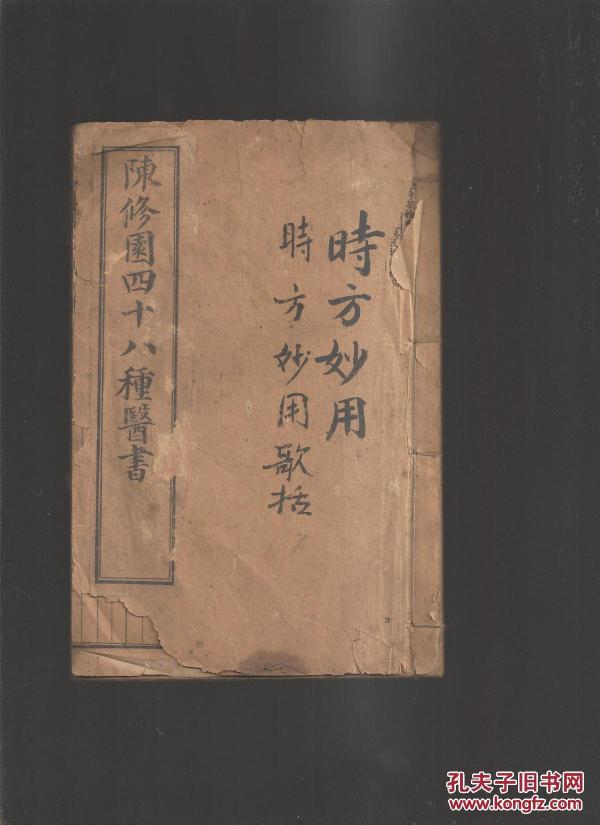 時方妙用
時方妙用歌括
陳修園四十八種醫書
孔夫子旧书网
www.kongfz.com